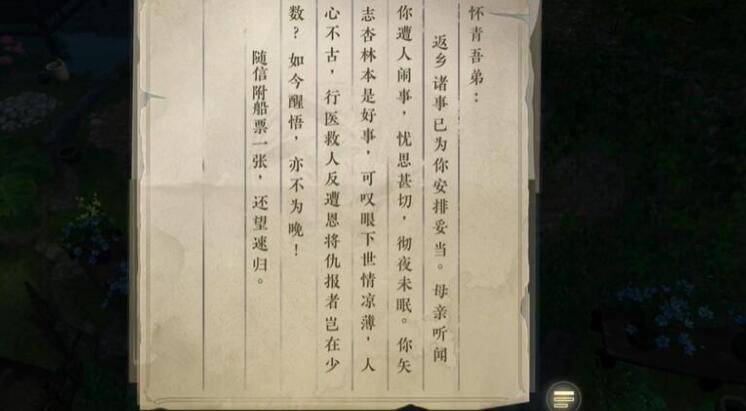 怀青吾弟：
返乡诸事已为你安排妥当。母亲听闻
你遭人闹事，忧思甚切，彻夜未眠。你矢
志杏林本是好事，可叹眼下世情凉薄，人
心不古，行医救人反遭恩将仇报者岂在少
数？如今醒悟，亦不为晚！
随信附船票一张，还望速归。